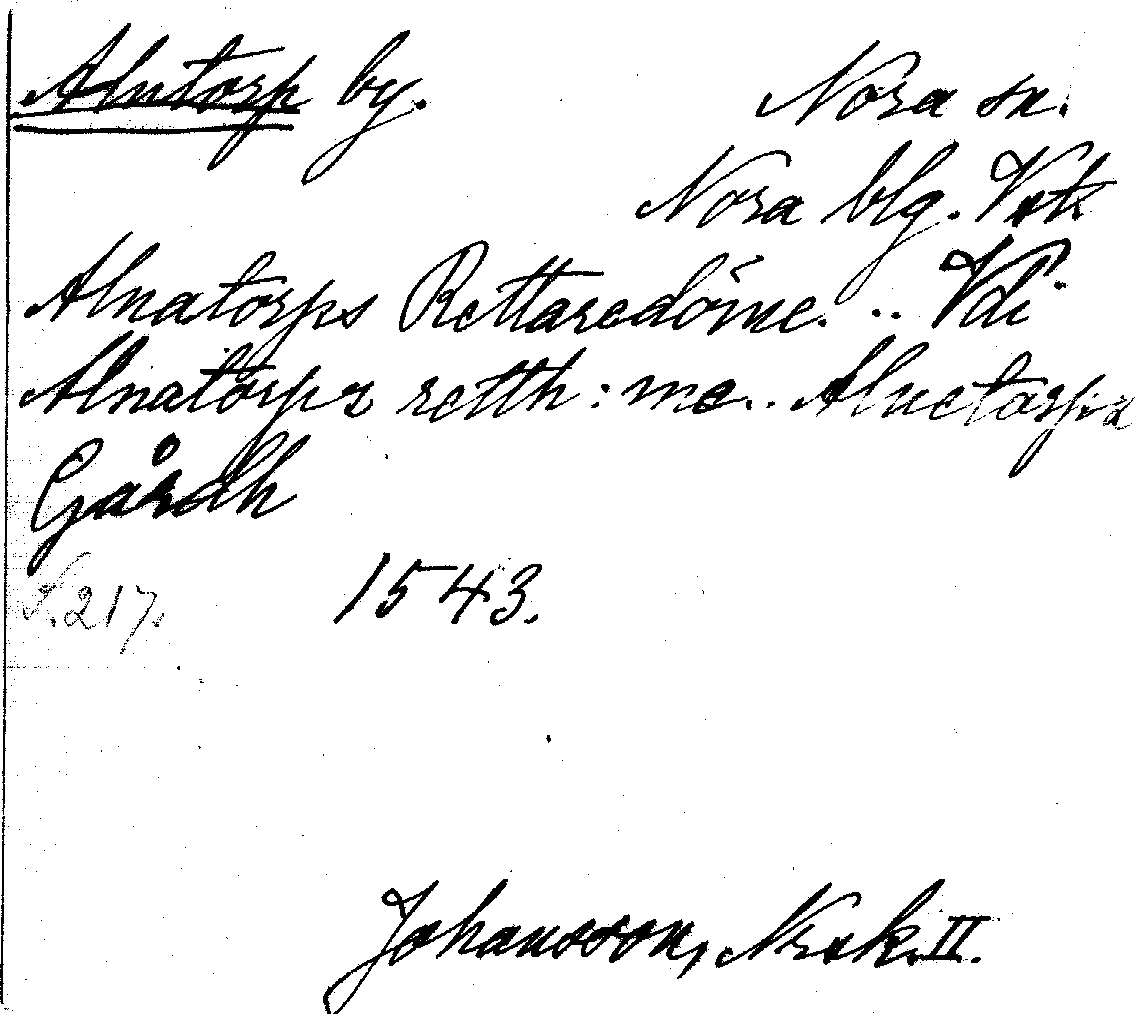 Alntorp by. Nora sn.
Nora blg. Vstm
Alnatorps Rettaredöme. .. Vdi
Alnatorps retth:me.. Alnetorps
Gårdh
S. 217. 1543.
Johansson, Norask. II.